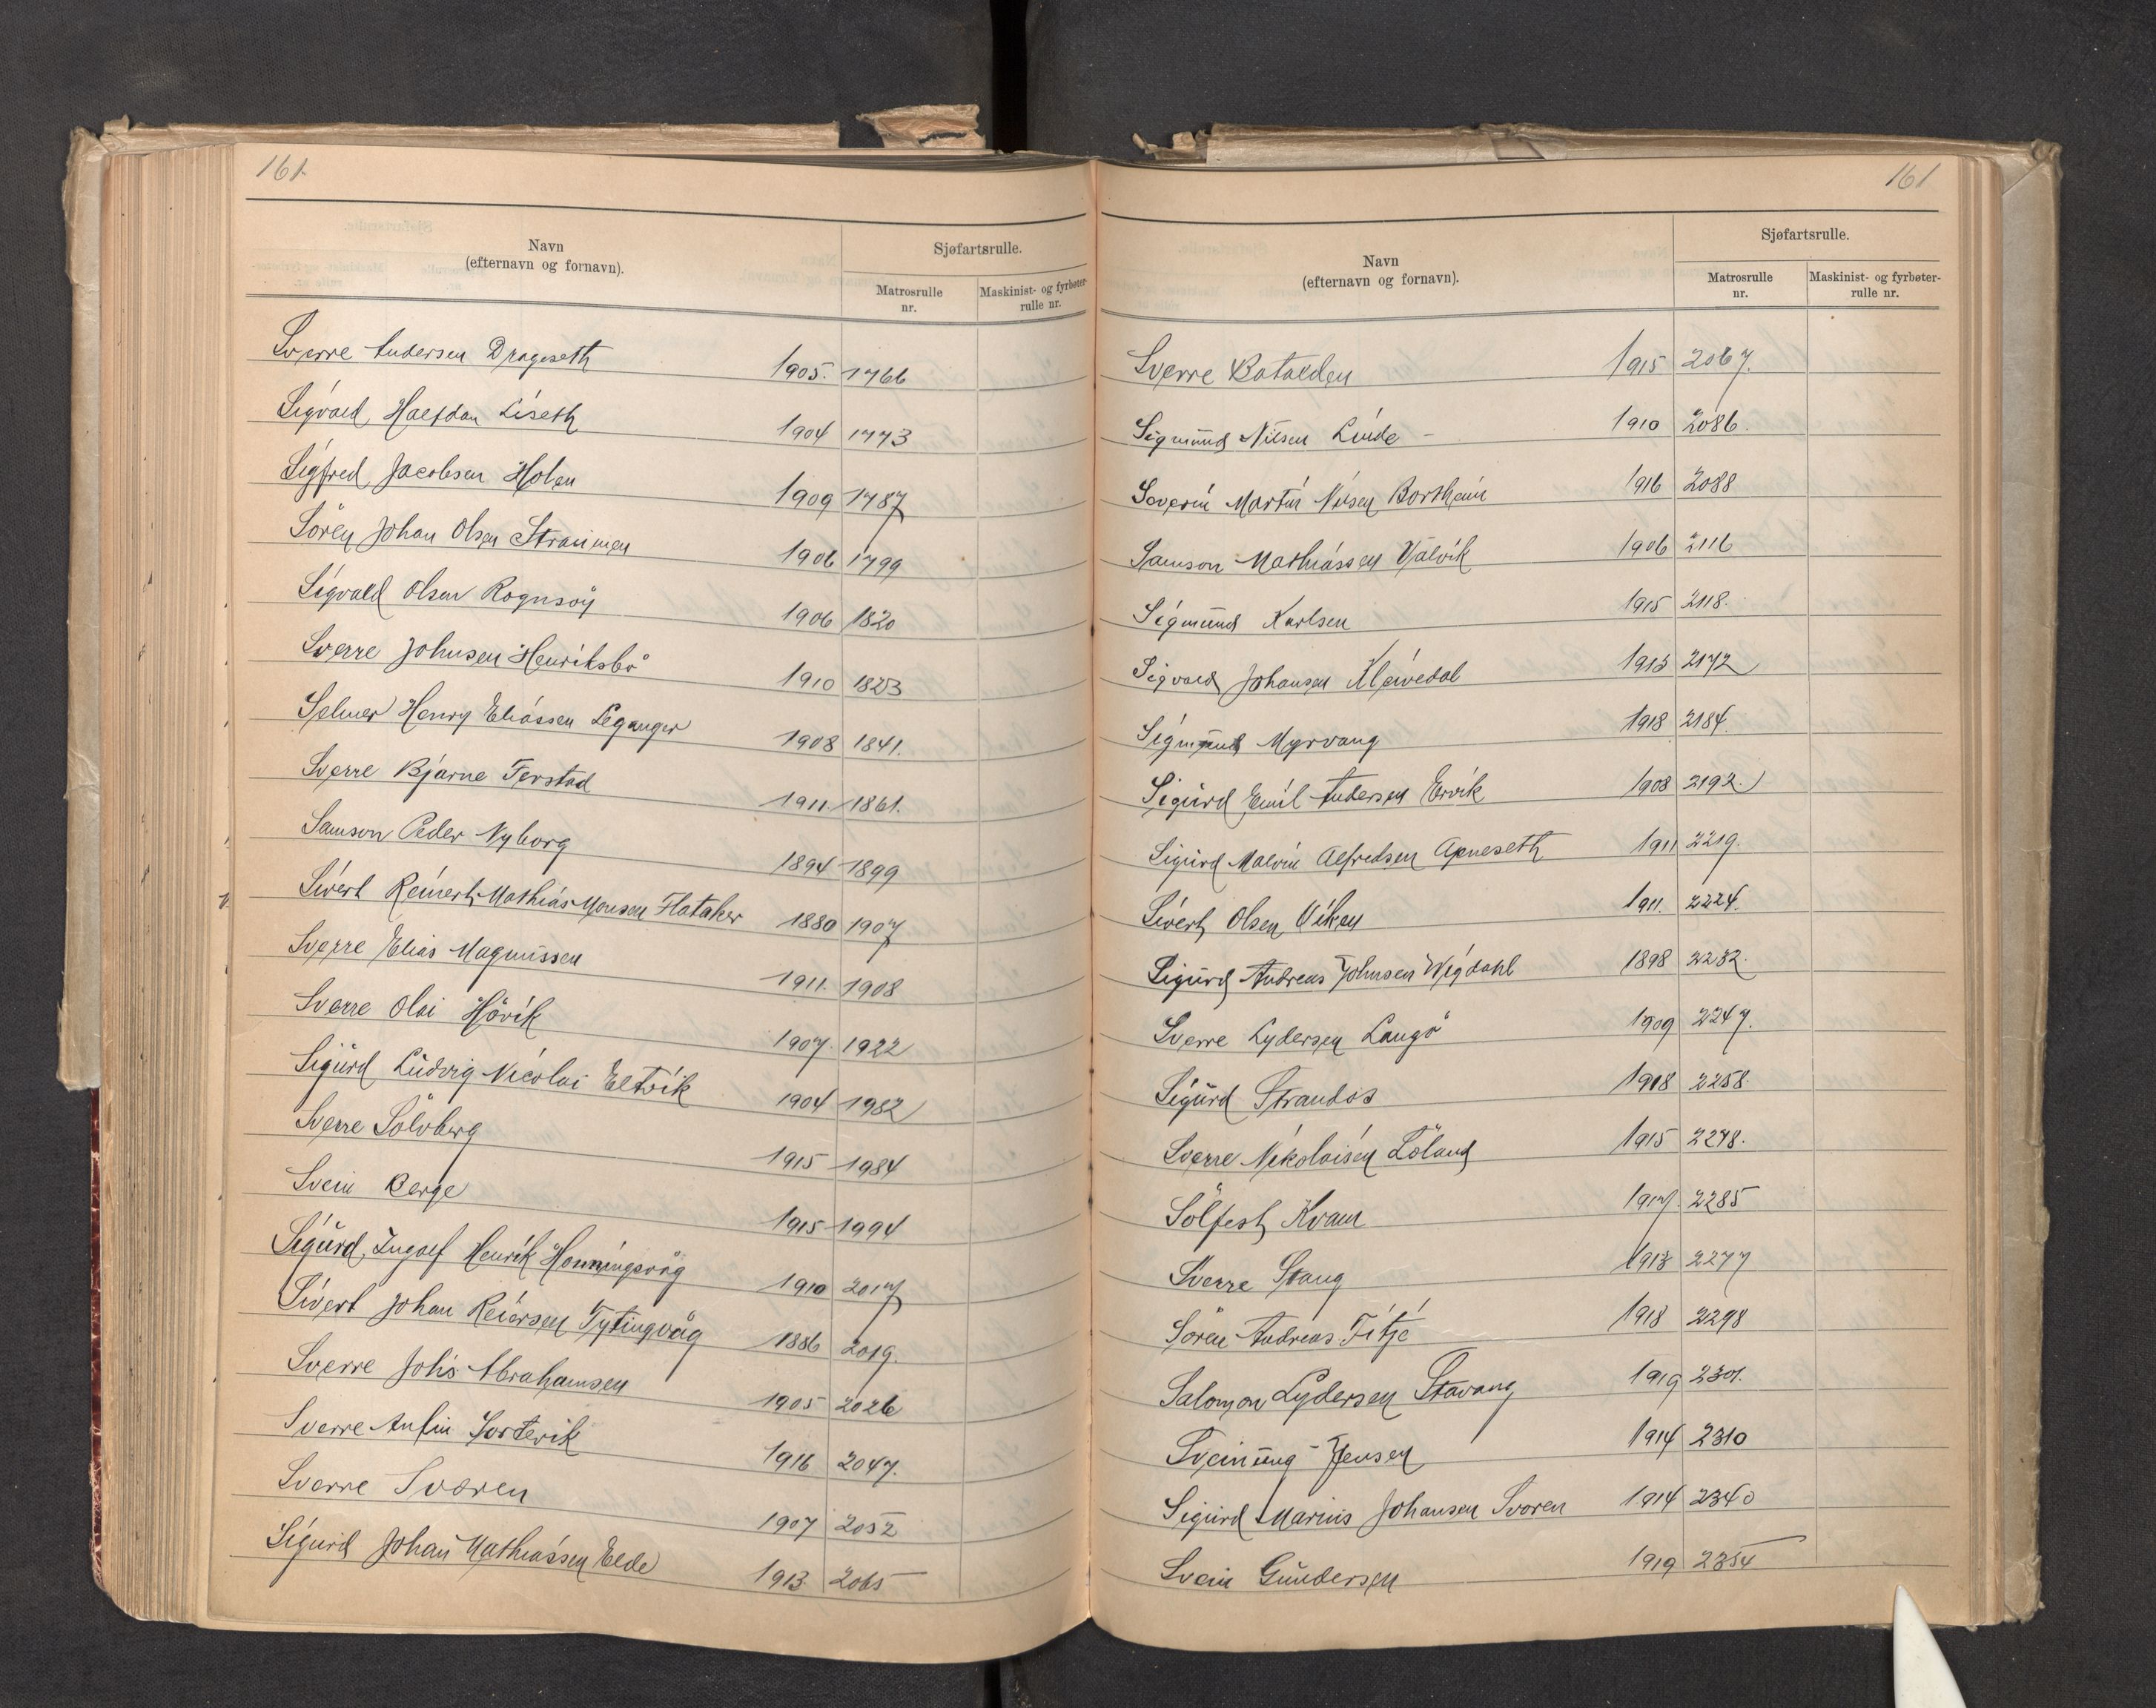 161.
Navn
(efternavn og fornavn).
Sjøfartsrulle.
Matrosrulle
nr.
Maskinist- og fyrbøter-
rulle nr.
Sverre Andersen Drageseth 1905. 1766
Sigvald Halfdan Liseth 1904 1773
Sigfred Jacobsen Holen 1909 1787
Sören Johan Olsen Straumen 1906 1799
Sigvald Olsen Rognsöy 1906 1820
Sverre Johnsen Henriksbö 1910 1823
Selmer Henry Eliassen Leganger 1908 1841.
Sverre Bjarne Ferstad 1911. 1861.
Samson Peder Nyborg 1894 1899
Sivert Reinert Mathias Monsen Flataker 1880 1907
Sverre Elias Magnussen 1911. 1908
Sverre Olai Hövik 1907. 1922
Sigurd Ludvig Nicolai Eltvik 1904 1982
Sverre Sölvberg 1915 1984
Svein Berge 1915 1994
Sigurd Ingolf Henrik Honningsvåg 1910 2017
Sivert Johan Reiersen Tytingvåg 1886 2019.
Sverre Johs Abrahamsen 1905 2026
Sverre Anfin Sortevik 1916 2047.
Sverre Svoren 1907 2052
Sigurd Johan Mathiassen Elde 1913. 2065
161
Navn
(efternavn og fornavn).
Sjøfartsrulle.
Matrosrulle
nr.
Maskinist- og fyrbøter-
rulle nr.
Sverre Batalden 1915 2067.
Sigmund Nilsen Linde - 1910 2086.
Severin Martin Nilsen Borsheim 1916 2088
Samson Mathiassen Valvik 1906 2116
Sigmund Karlsen 1915 2118.
Sigvald Johansen Kleivedal 1913 2172
Sigmund Myrvang 1918 2184.
Sigurd Emil Andersen Ervik 1908 2192.
Sigurd Malvin Alfredsen Apneseth 1911 2219.
Sivert Olsen Viken 1911. 2224.
Sigurd Andreas Johnsen Wigdahl 1898 2232.
Sverre Lydersen Langö 1909 2247.
Sigurd Strandos 1918 2258.
Sverre Nikolaisen Löland 1915 2278.
Sölfest Kvam 1917. 2285
Sverre Stang 1913 2277
Sören Andreas Fitje 1918 2298
Salomon Lydersen Stavang 1919 2301.
Sveinung Jensen 1914 2310
Sigurd Marius Johansen Svoren 1914 2340
Svein Gundersen 1919 2354